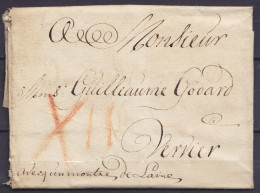 A Monsieur
Mons.r Guilleaume Godard
à
Vervier
XII
avec un montre de Laine